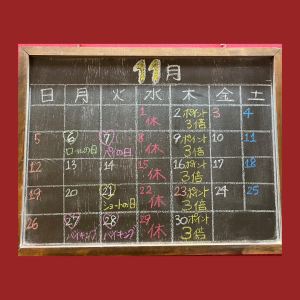 11月
日 月 火 水 木 金 土
1 休 2 ポイント 3倍 3 4
5 6 ロールの日 7 パイの日 8 休 9 ポイント 3倍 10 11
12 13 14 15 休 16 ポイント 3倍 17 18
19 20 21 ショートの日 22 休 23 ポイント 3倍 24 25
26 27 バイキング 28 バイキング 29 休 30 ポイント 3倍